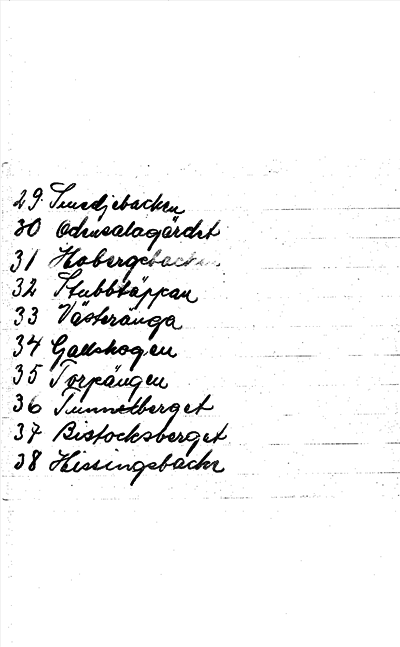 29. Smedjebacken
30 Odensalagärdet
31 Hobergsbacken
32 Stubbtäppan
33 Västeränga
34 Gallskogen
35 Torpängen
36 Tunnelberget
37 Bistocksberget
38 Hissingsbacke